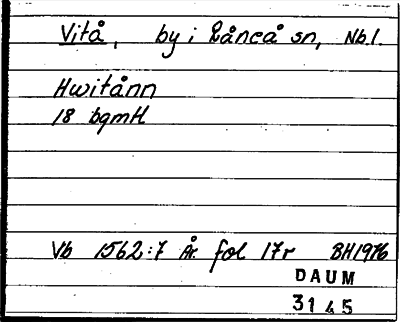 Vitå, by i Råneå sn, Nb.l.
Hwitånn
18 bgmH
Vb 1562:7 År. fol 17r BH1976
DAUM
3145